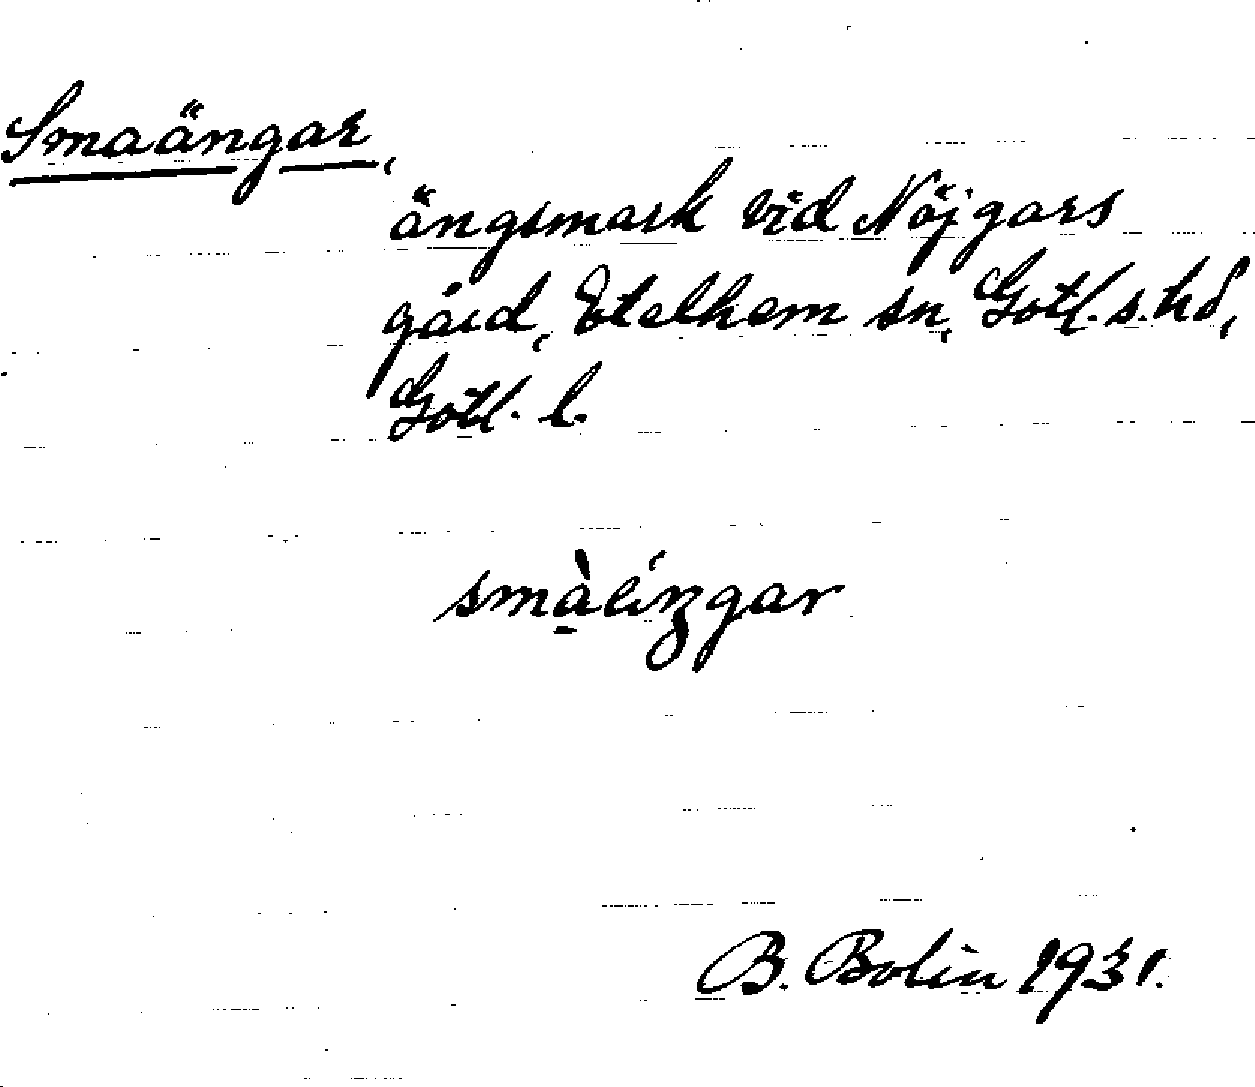 Smaängar,
ängsmark vid Nöjgars
gård, Etelhem sn, Gotl. s. hd,
Gotl. l.
smàlíŋgar
B. Bolin 1931.